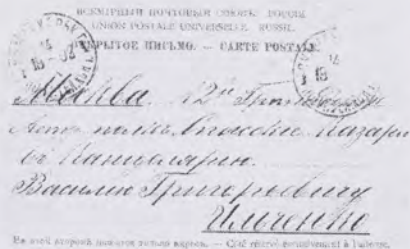 ВСЕМІРНЫЙ ПОЧТОВЫЙ СОЮЗЪ. РОССІЯ.
UNION POSTALE UNIVERSELLE. RUSSIE.
ОТКРЫТОЕ ПИСЬМО. — CARTE POSTALE.
Москва. 12й
полкъ Спасскіе казармы
въ Канцелярію.
Василію Григорьевичу
Ильченко
На этой сторонѣ пишется только адресъ. — Côté réservé exclusivement à l'adresse.